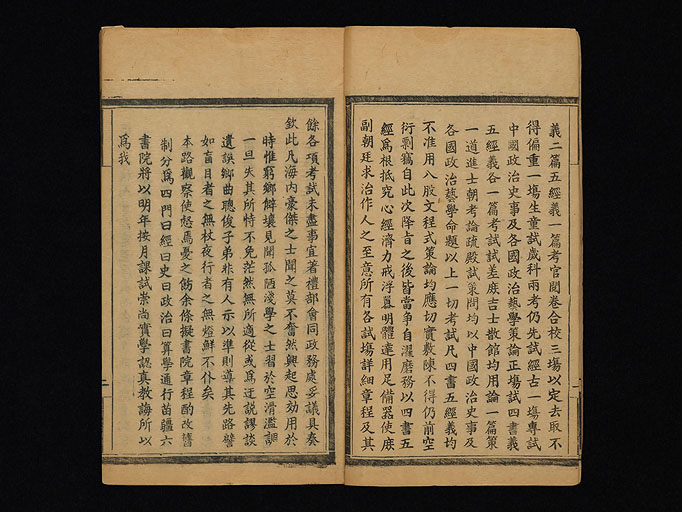 義二篇五經義一篇考官閱卷合校三塲以定去取不
得偏重一塲生童試歲科兩考仍先試經古一塲專試
中國政治史事及各國政治藝學策論正塲試四書義
五經義各一篇考試試差庶吉士散館均用論一篇策
一道進士朝考論疏殿試策問均以中國政治史事及
各國政治藝學命題以上一切考試凡四書五經義均
不准用八股文程式策論均應切實敷陳不得仍前空
衍剽竊自此次降旨之後皆當爭自濯磨務以四書五
經爲根柢究心經濟力戒浮囂明體達用足備器使庶
副朝廷求治作人之至意所有各試塲詳細章程及其
餘各項考試未盡事宜著禮部會同政務處妥議具奏
欽此凡海内豪傑之士聞之莫不奮然興起思効用於
時惟窮鄉僻壤見聞孤陋淺學之士習於空滑濫調
一旦失其所恃不免茫然無所適從或爲迂説謬談
遺誤鄉曲聰俊子弟非有人示以準則導其先路譬
如盲目者之無杖夜行者之無燈鮮不仆矣
本路觀察使怒焉憂之飭余條擬書院章程酌改舊
制分爲四門曰經曰史曰政治曰算學通行苗疆六
書院將以明年按月課試崇尚實學認真教誨所以
爲我
二